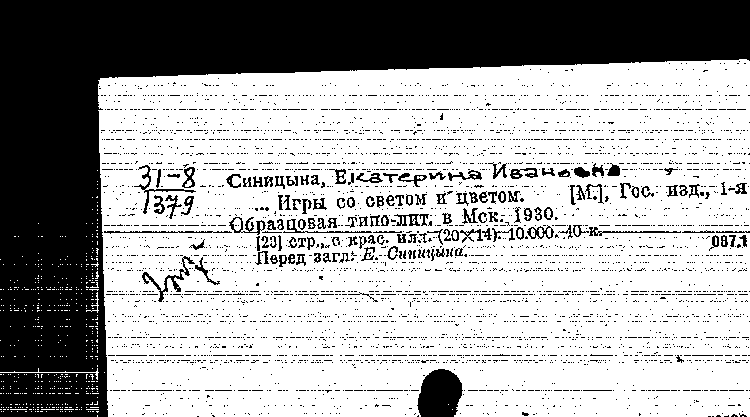 31-8
1379
Синицына, Екатерина Ивановна
... Игры со светом и цветом. [М.], Гос. изд., 1-я
Образцовая типо-лит. в Мск. 1930.
[23] стр., с крас. илл. (20×14). 10.000. 40 к.
087.1
Перед загл: Е. Синицына.